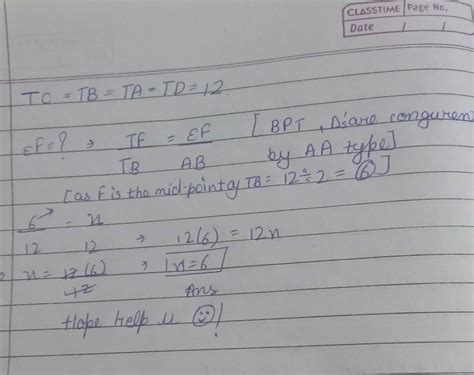 CLASSTIME Page No.
Date / /
TC = TB = TA = TD = 12.
EF = ? → TF/TB = EF/AB [BPT, Δ's are conguren
by AA type]
[as F is the mid-point of TB = 12 ÷ 2 = 6]
6/12 = x/12 → 12(6) = 12x
x = 12(6)/12 → x = 6
Ans
Hope help u ☺!